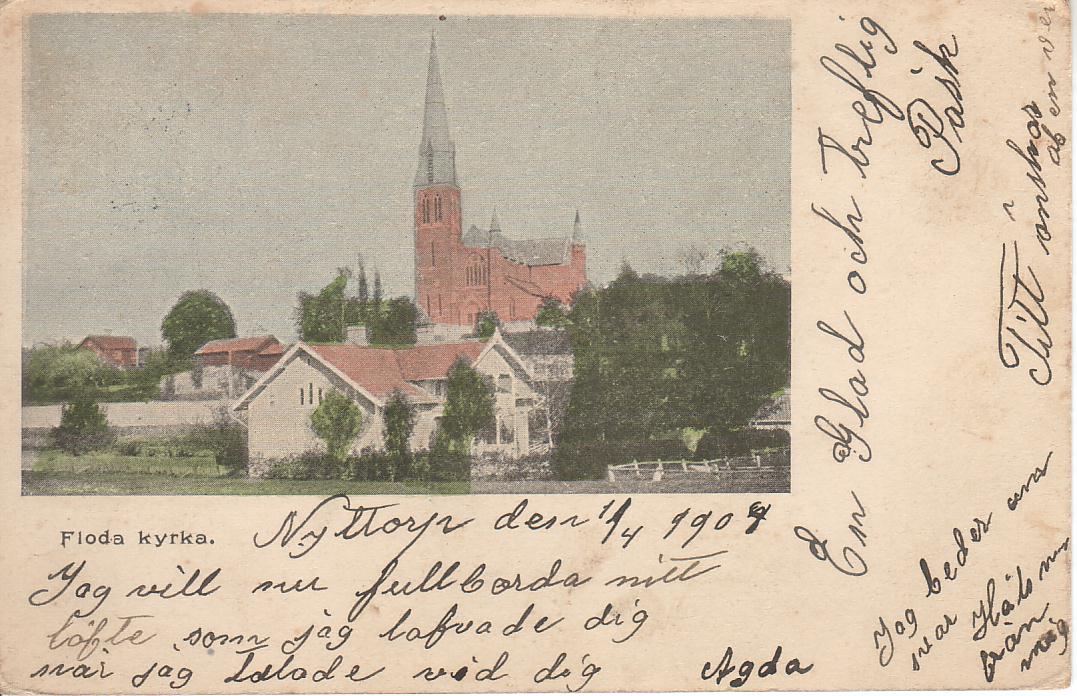 Floda kyrka.
Nyttorp den 1/4 1907
Jag vill nu fullborda mitt
löfte som jag lofvade dig
när jag talade vid dig Agda
En Glad och treflig
Påsk
Titt önskar
Jag beder om
svar
från
mig